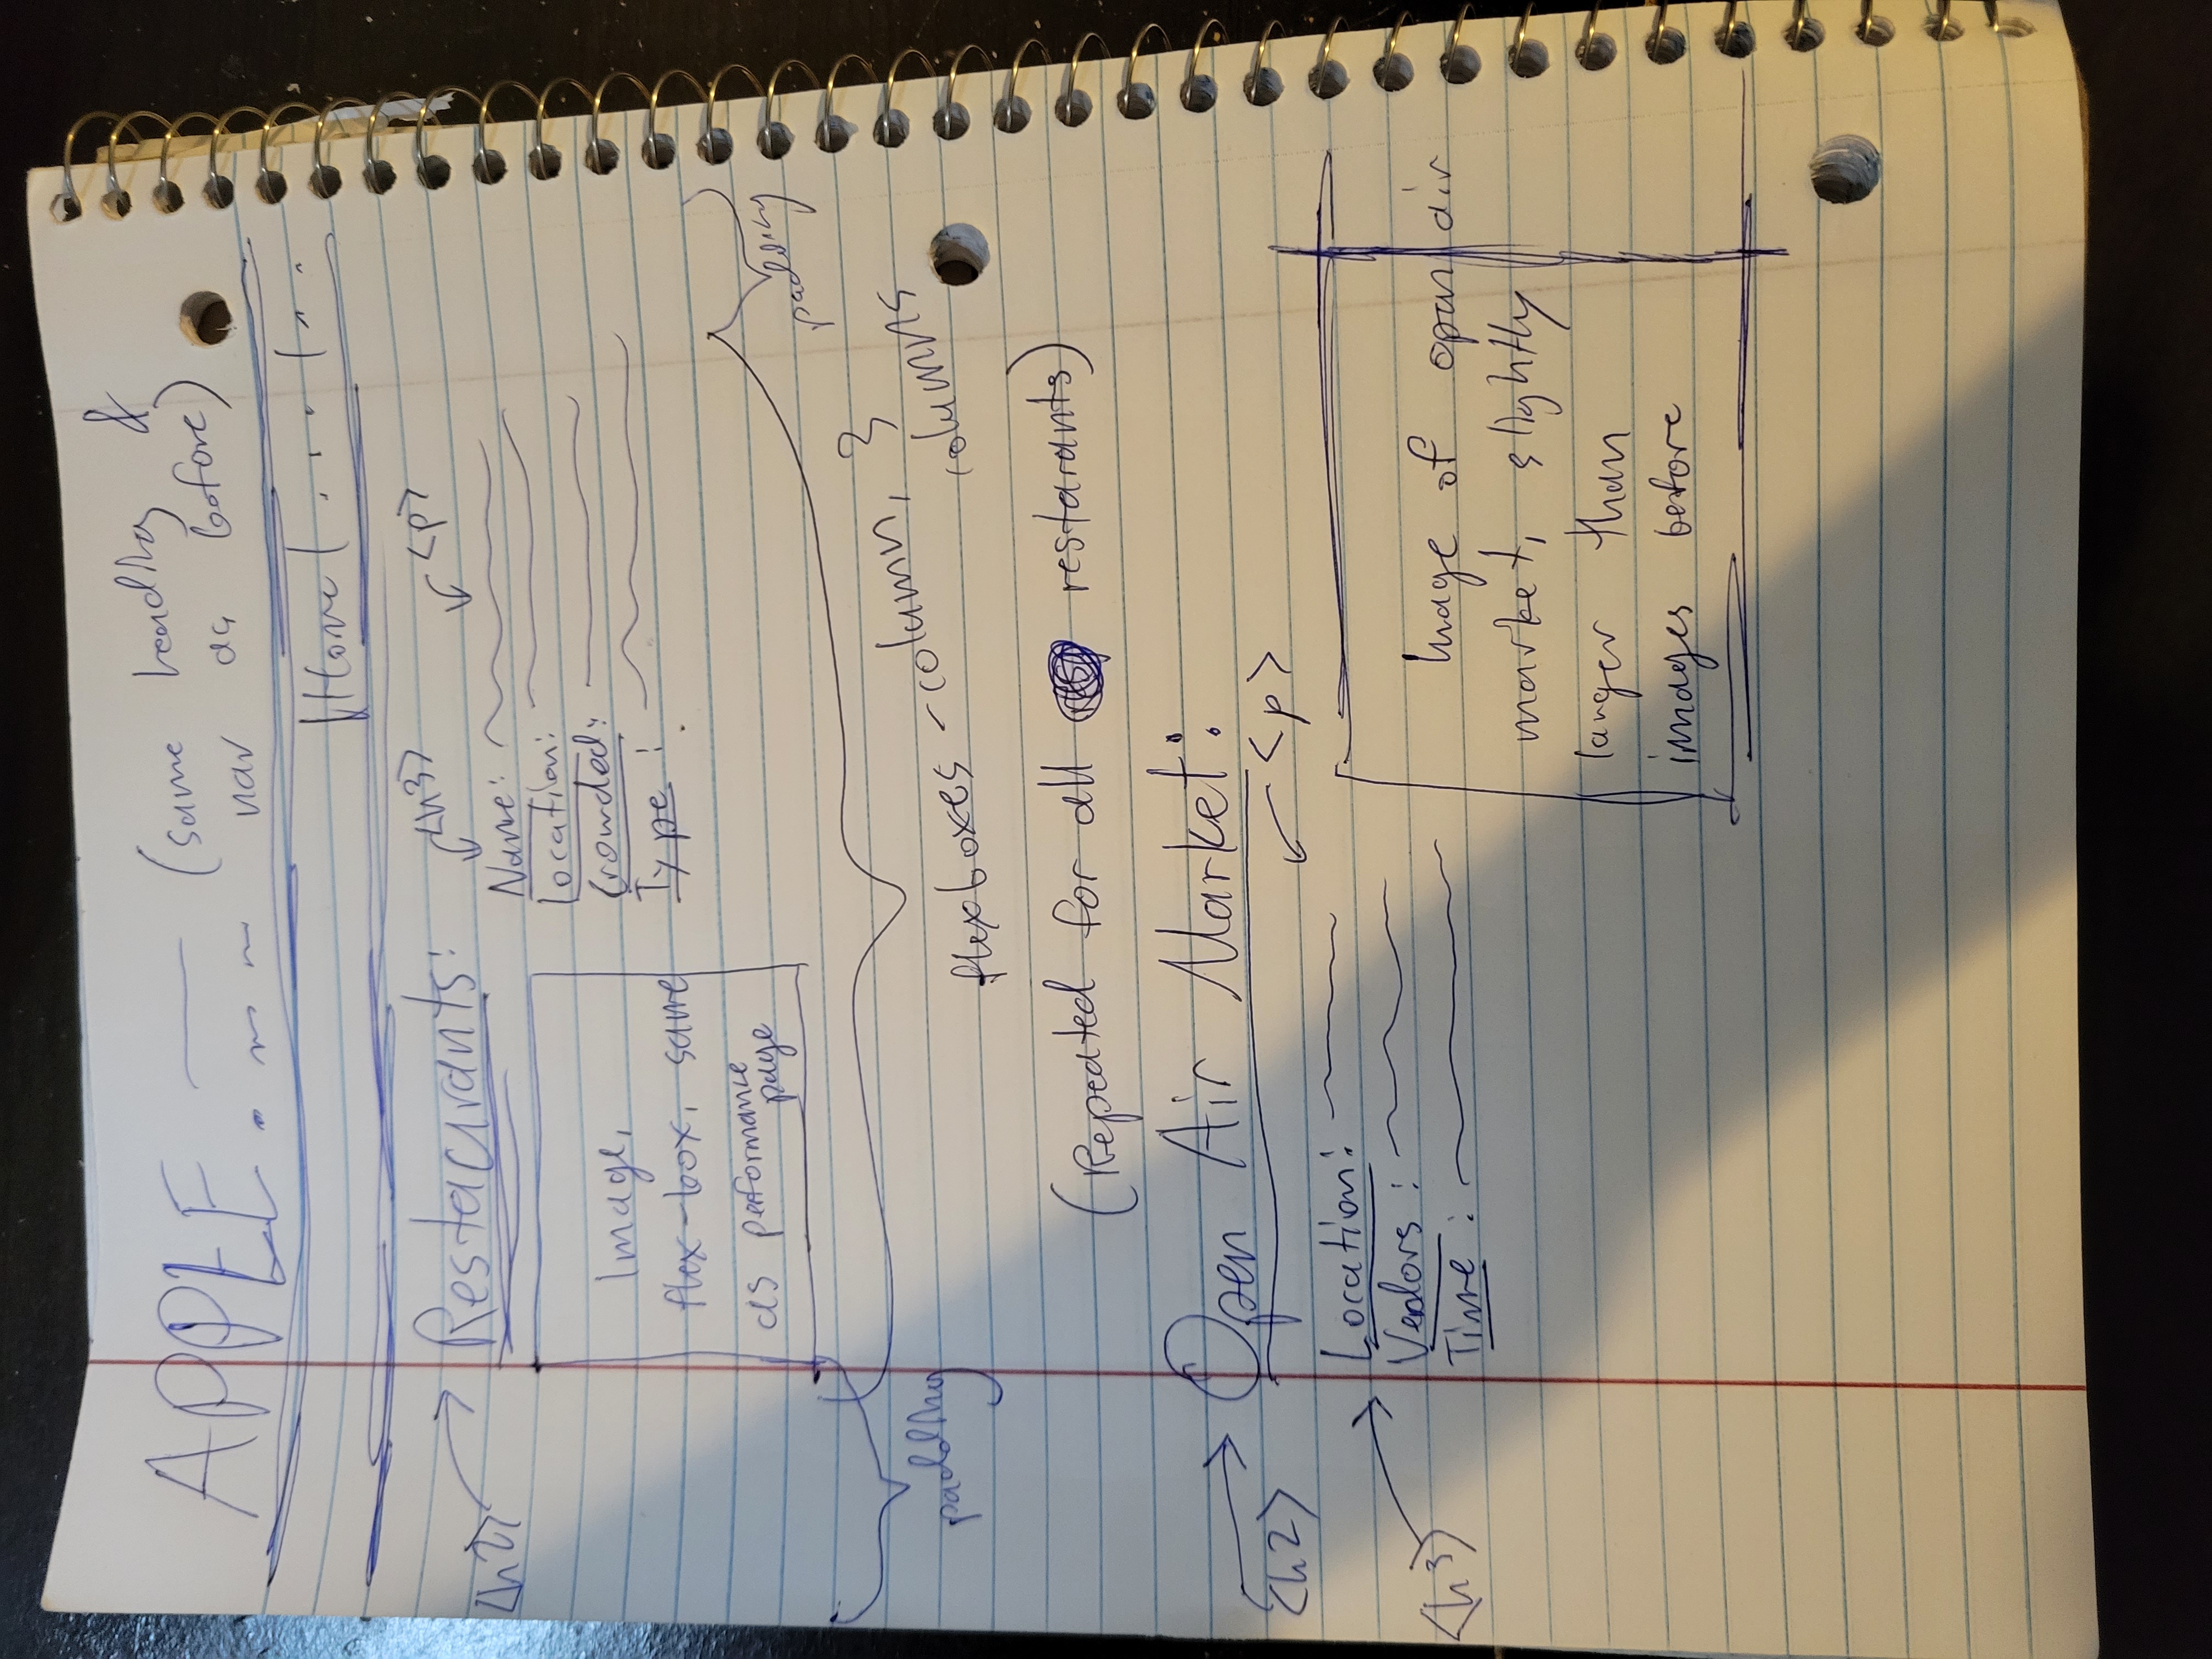 APPLE. — (same heading &
nav as before)
|Home| . . . . | . . .
<h2> Restaurants:
<h3> <p>
Name:
Location:
Crowded:
Type:
Image,
flex-box, same
as performance
page
padding
padding
flexboxes-column, 3
columns
(Repeated for all restarants)
<h2> Open Air Market:
<p>
<h3> Location:
Vendors:
Time:
Image of open air
market, slightly
larger than
images before